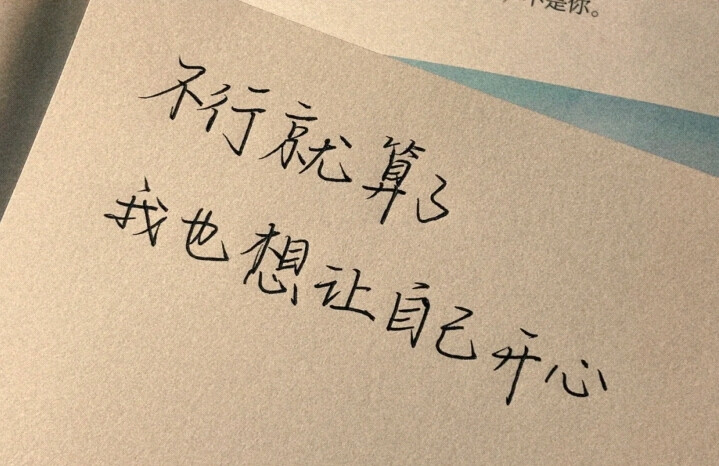 是你。
不行就算了
我也想让自己开心